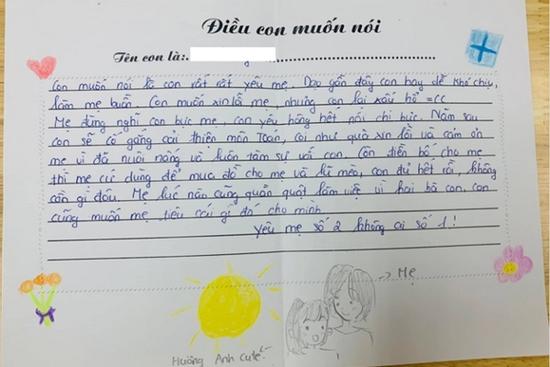 Điều con muốn nói
Tên con là:
Con muốn nói là con rất rất yêu mẹ. Dạo gần đây con hay dễ khó chịu,
làm mẹ buồn. Con muốn xin lỗi mẹ, nhưng con lại xấu hổ =CC
Mẹ đừng nghĩ con bực mẹ, con yêu hổng hết nói chi bực. Năm sau
con sẽ cố gắng cải thiện môn Toán, coi như quà xin lỗi và cảm ơn
mẹ vì đã nuôi nấng và luôn tâm sự với con. Còn tiền bố cho mẹ
thì mẹ cứ dùng để mua đồ cho mẹ và lũ mèo, con đủ hết rồi, không
cần gì đâu. Mẹ lúc nào cũng quần quật làm việc vì hai bố con, con
cũng muốn mẹ tiêu cái gì đó cho mình.
Yêu mẹ số 2 không ai số 1!
→ Mẹ
Hương Anh cute